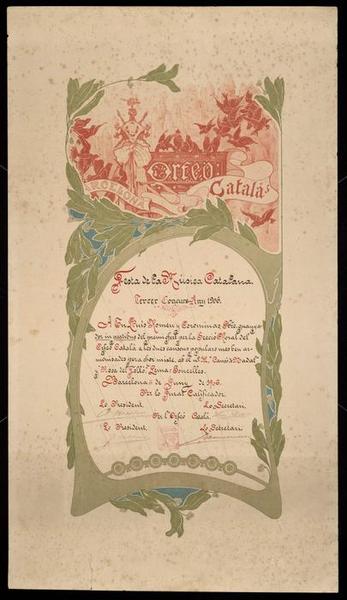 Orfeó
Català
BARCELONA
Festa de la Música Catalana.
Tercer Concurs-Any 1906.
A En Lluis Romeu y Corominas Pbre. guanya-
dor del premi ofert per la Secció Coral del
Orfeó Català a les dues cansons populars mes ben ar-
monisades pera chor mixte, ab el
Barcelona de Juny de 1906.
Per lo Jurat Calificador.
Lo President. Lo Secretari.
Per l'Orfeó Català
Lo President. Lo Secretari.